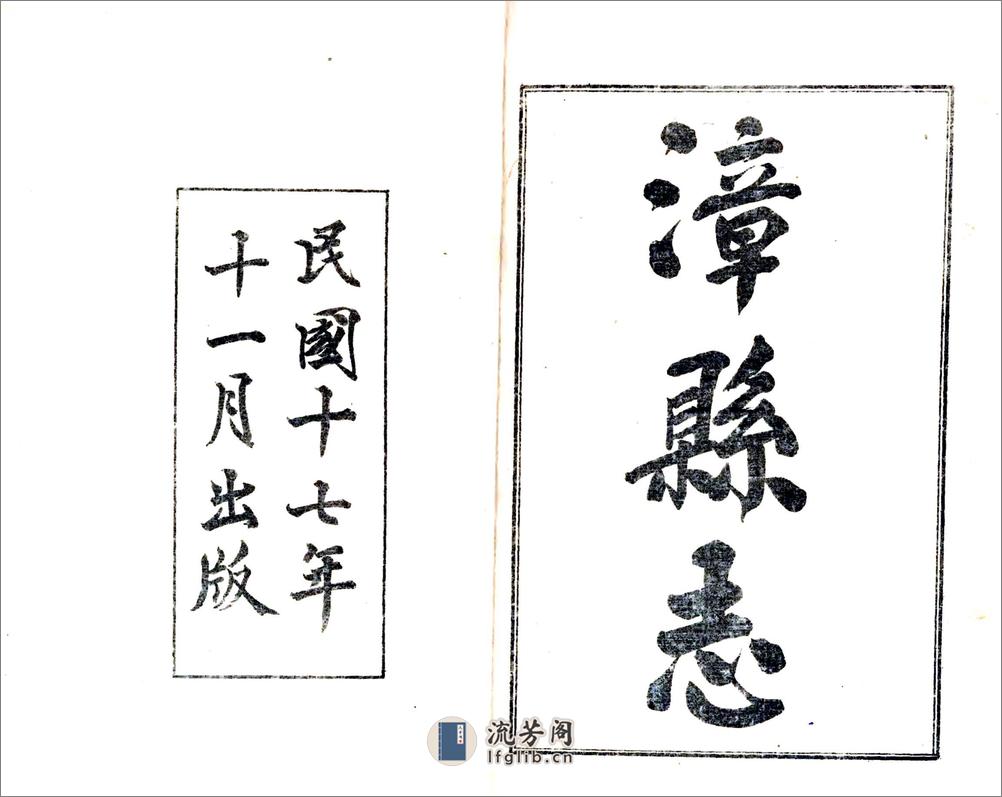 漳縣志
民國十七年
十一月出版
流芳阁
lfglib.cn